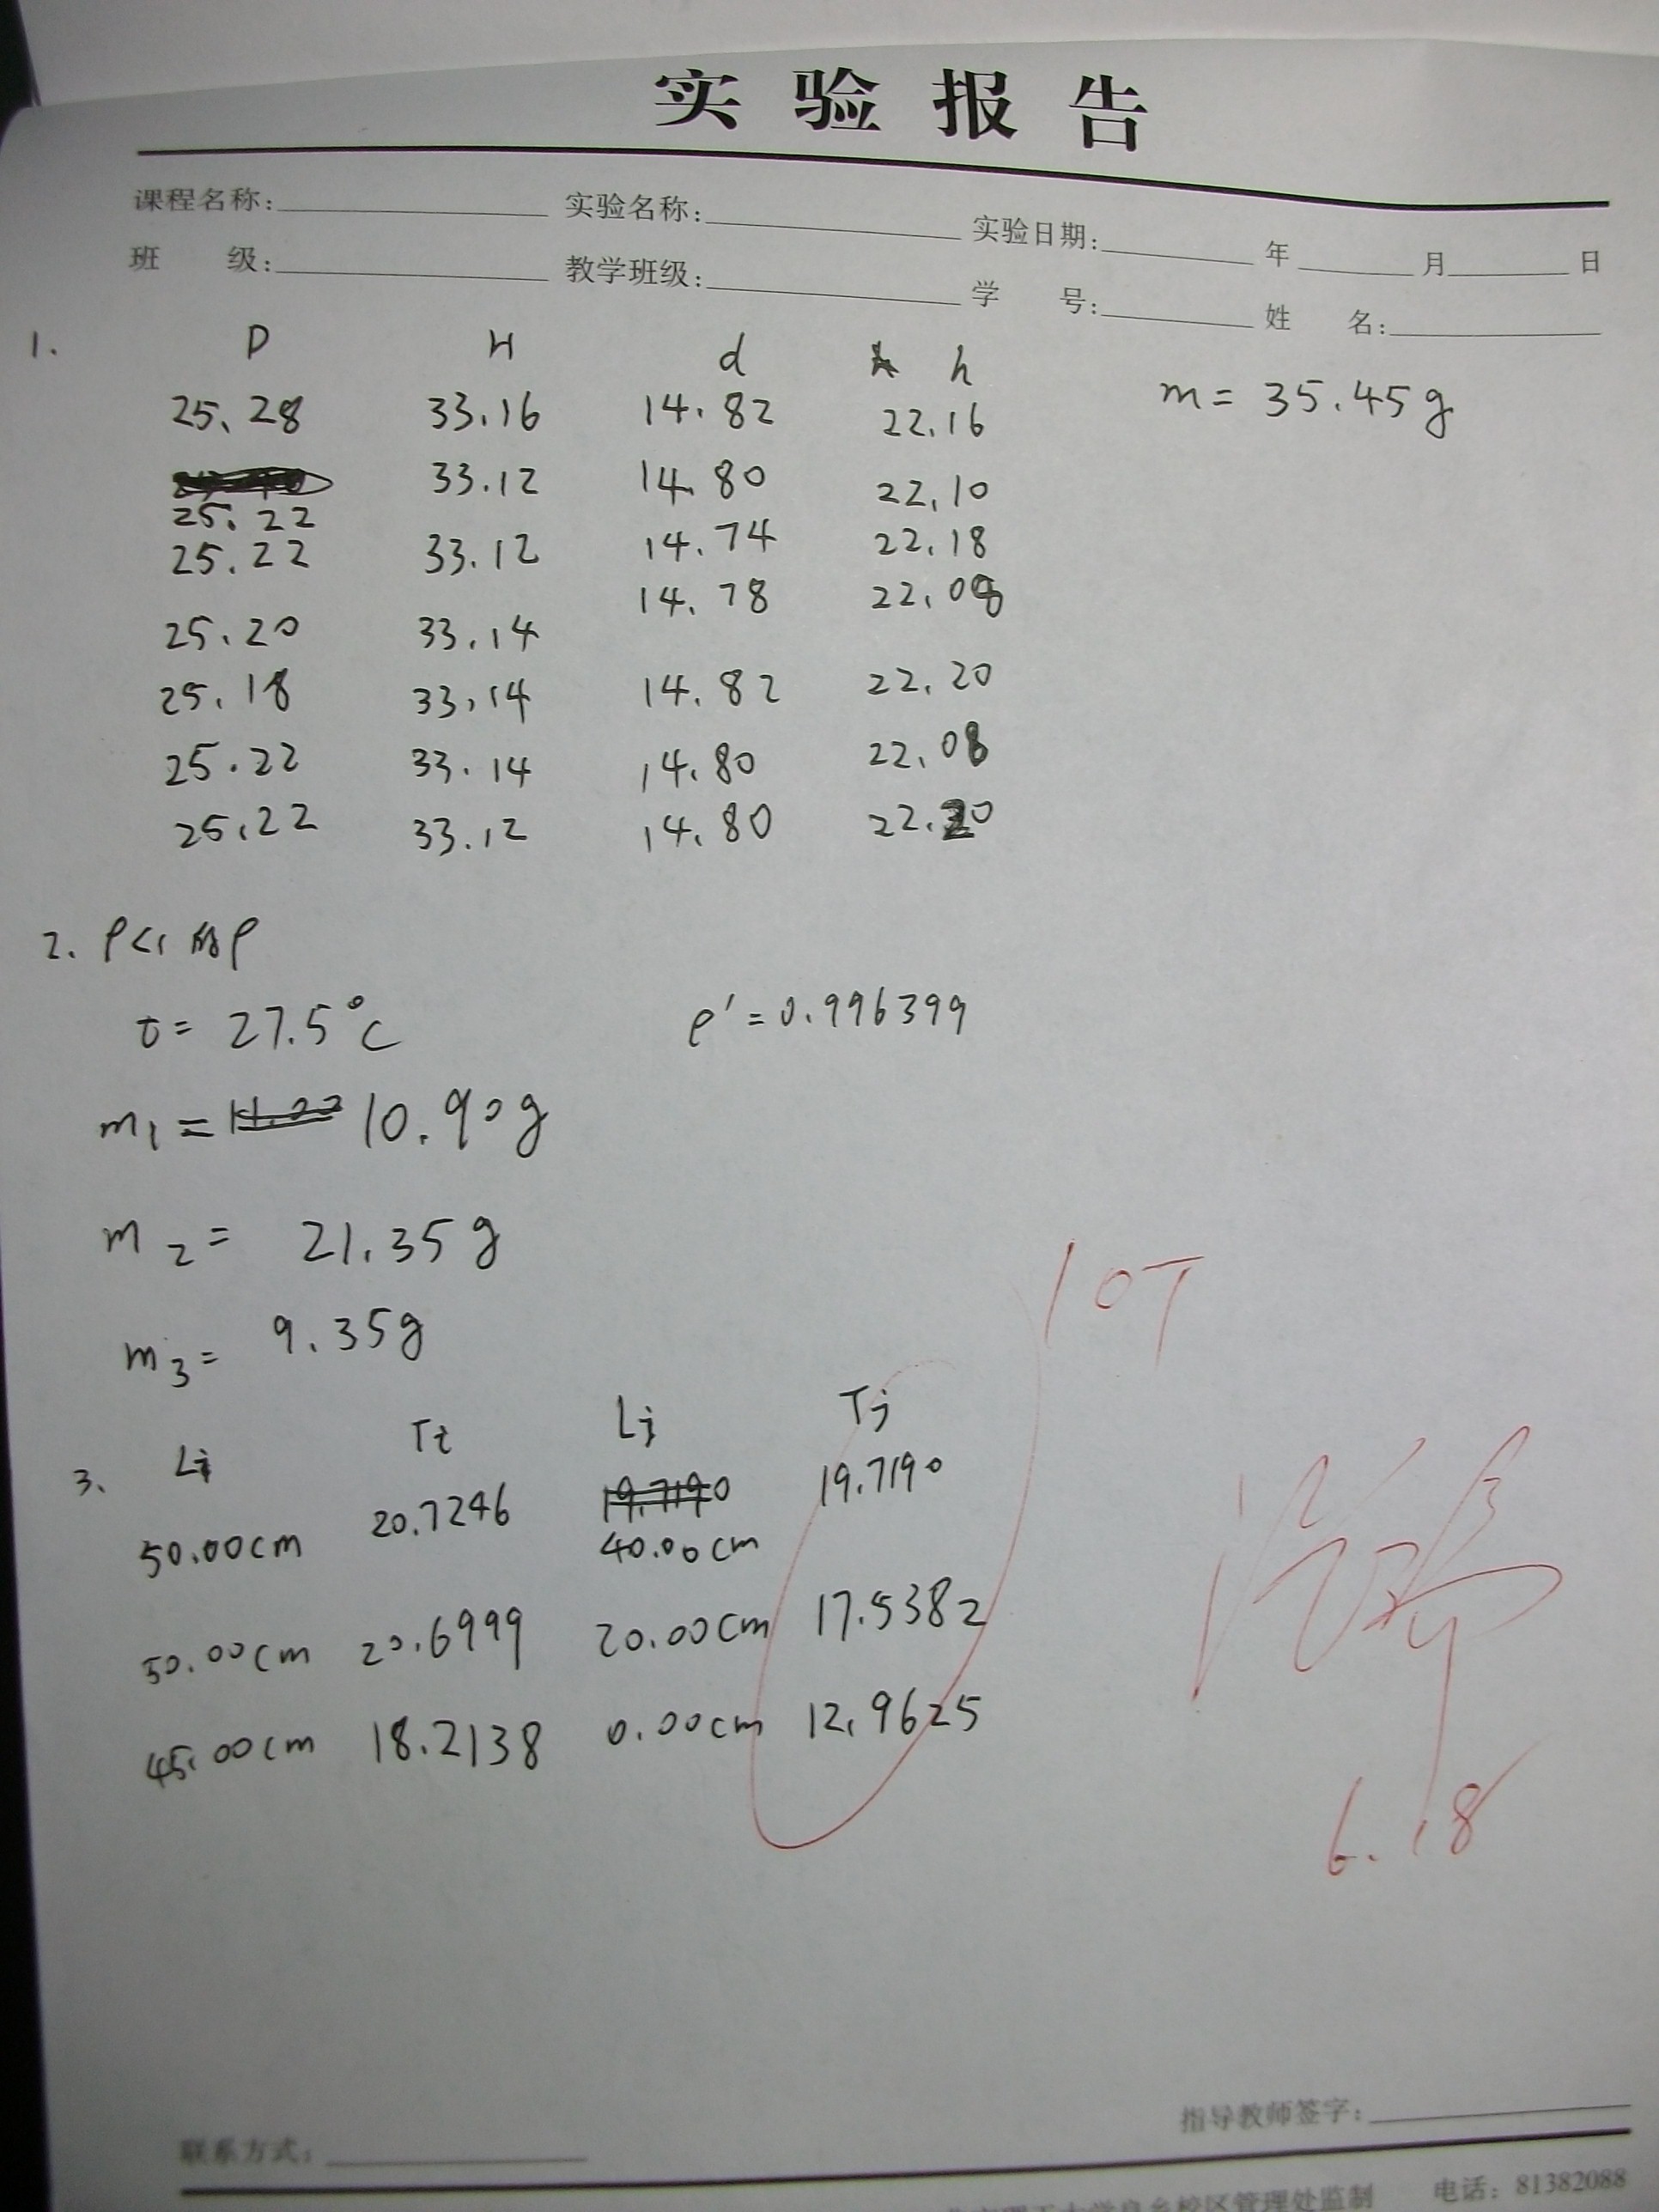 实验报告
课程名称: 实验名称: 实验日期: 年 月 日
班 级: 教学班级: 学 号: 姓 名:
1. D H d h
25.28 33.16 14.82 22.16 m = 35.45g
25.22 33.12 14.80 22.10
25.22 33.12 14.74 22.18
14.78 22.08
25.20 33.14
25.18 33.14 14.82 22.20
25.22 33.14 14.80 22.08
25.22 33.12 14.80 22.20
2. ρ<1的ρ
t = 27.5°C ρ' = 0.996399
m1 = 10.90g
m2 = 21.35g
m3 = 9.35g
10T
3. Li Ti Lj Tj
50.00cm 20.7246 19.7190 19.7190
40.00cm
50.00cm 20.6999 20.00cm 17.5382
45.00cm 18.2138 0.00cm 12.9625
6.18
指导教师签字:
联系方式:
北京理工大学良乡校区管理处监制 电话: 81382088